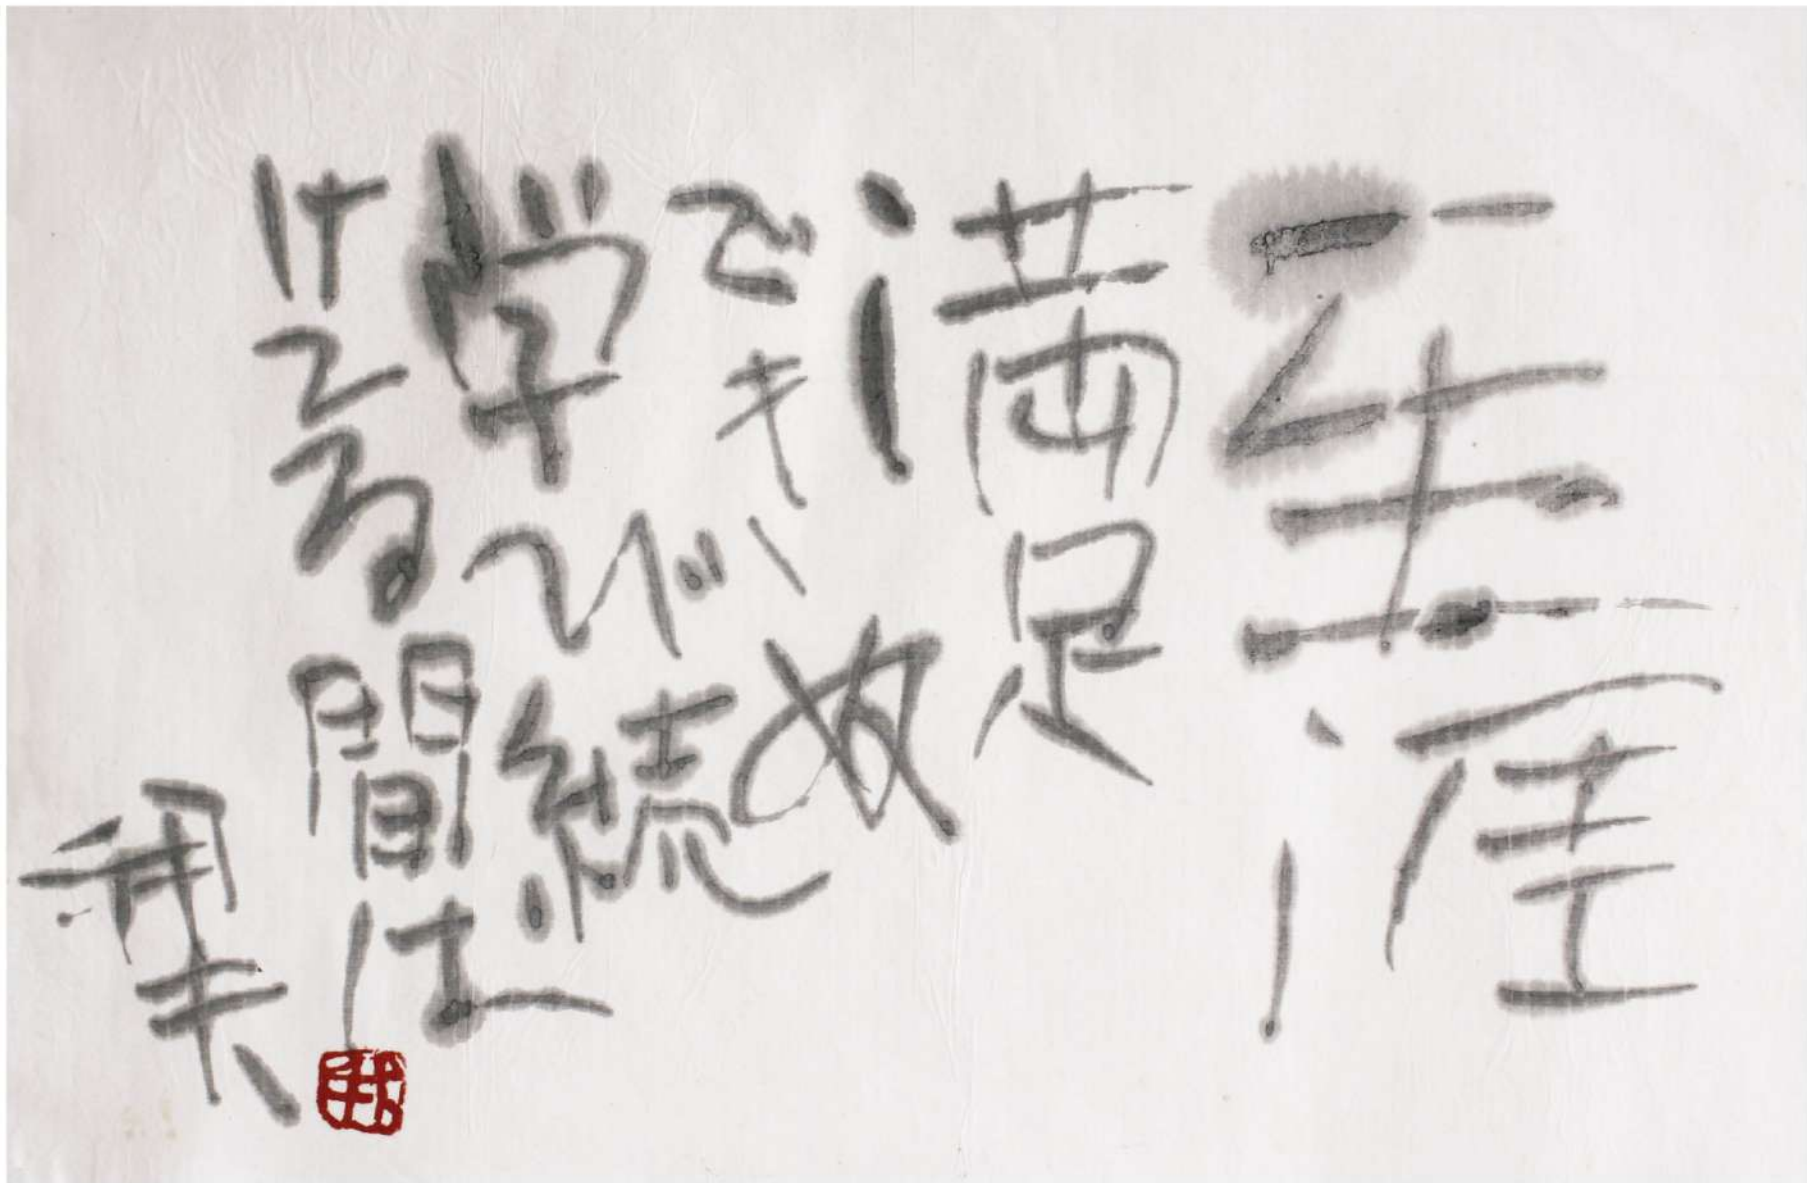 一生涯
満足
できぬ
学び続
けてる間は